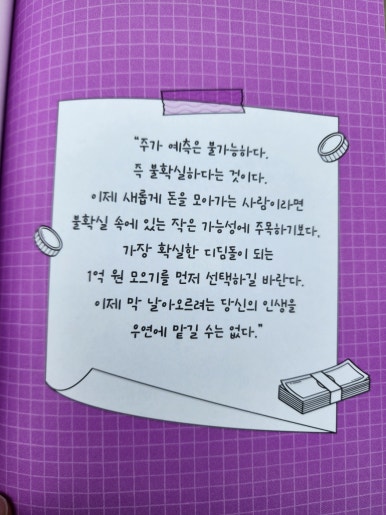 "주가 예측은 불가능하다.
즉 불확실하다는 것이다.
이제 새롭게 돈을 모아가는 사람이라면
불확실 속에 있는 작은 가능성에 주목하기보다.
가장 확실한 디딤돌이 되는
1억 원 모으기를 먼저 선택하길 바란다.
이제 막 날아오르려는 당신의 인생을
우연에 맡길 수는 없다."